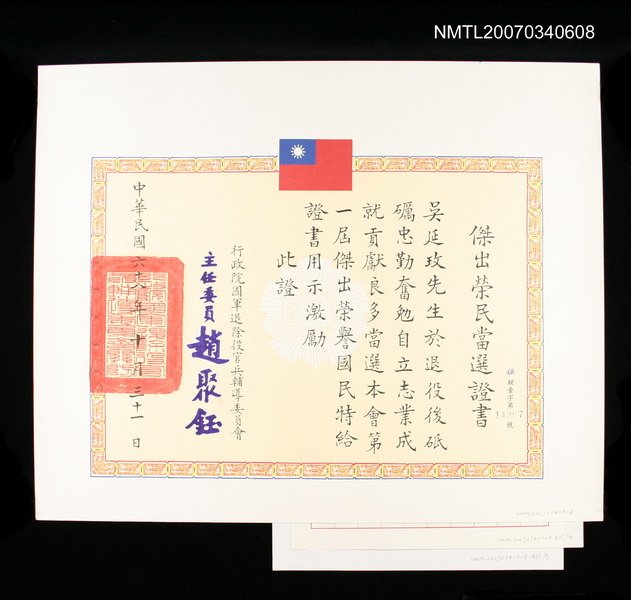 NMTL20070340608
傑出榮民當選證書
輔壹字第14307號
吳延玫先生於退役後砥
礪忠勤奮勉自立志業成
就貢獻良多當選本會第
一屆傑出榮譽國民特給
證書用示激勵
此證
行政院國軍退除役官兵輔導委員會
主任委員趙聚鈺
中華民國六十八年十月三十一日
NMTL20070340608